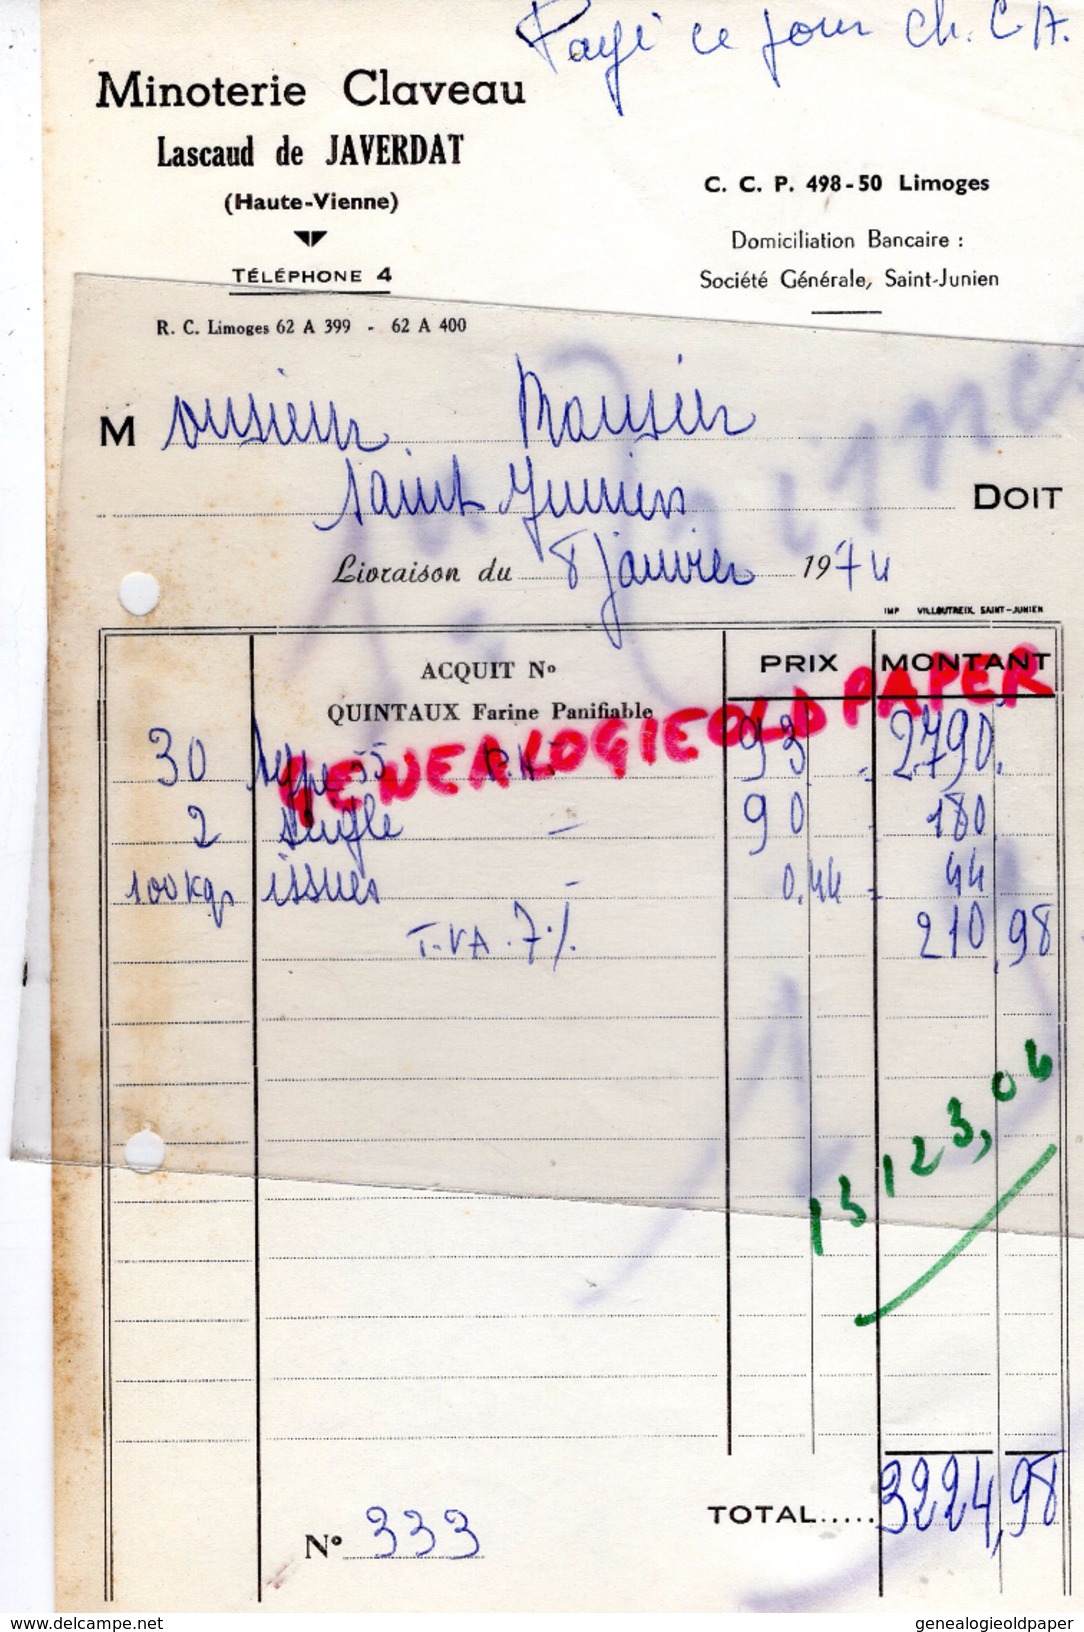 Payé ce jour Ch. C.A.
Minoterie Claveau
Lascaud de JAVERDAT
(Haute-Vienne)
TÉLÉPHONE 4
R. C. Limoges 62 A 399 - 62 A 400
C. C. P. 498-50 Limoges
Domiciliation Bancaire :
Société Générale, Saint-Junien
Monsieur
Saint Junien DOIT
Livraison du 8 janvier 1974
IMP VILLOUTREIX, SAINT-JUNIEN
ACQUIT No PRIX MONTANT
QUINTAUX Farine Panifiable
GENEALOGIEOLDPAPER
30 Type 55 93 2790
2 seigle — 90 180
100 kgs issues — 0.44 44
T.VA. 7% 210,98
13123,04
TOTAL..... 3224,98
No 333
www.delcampe.net genealogieoldpaper